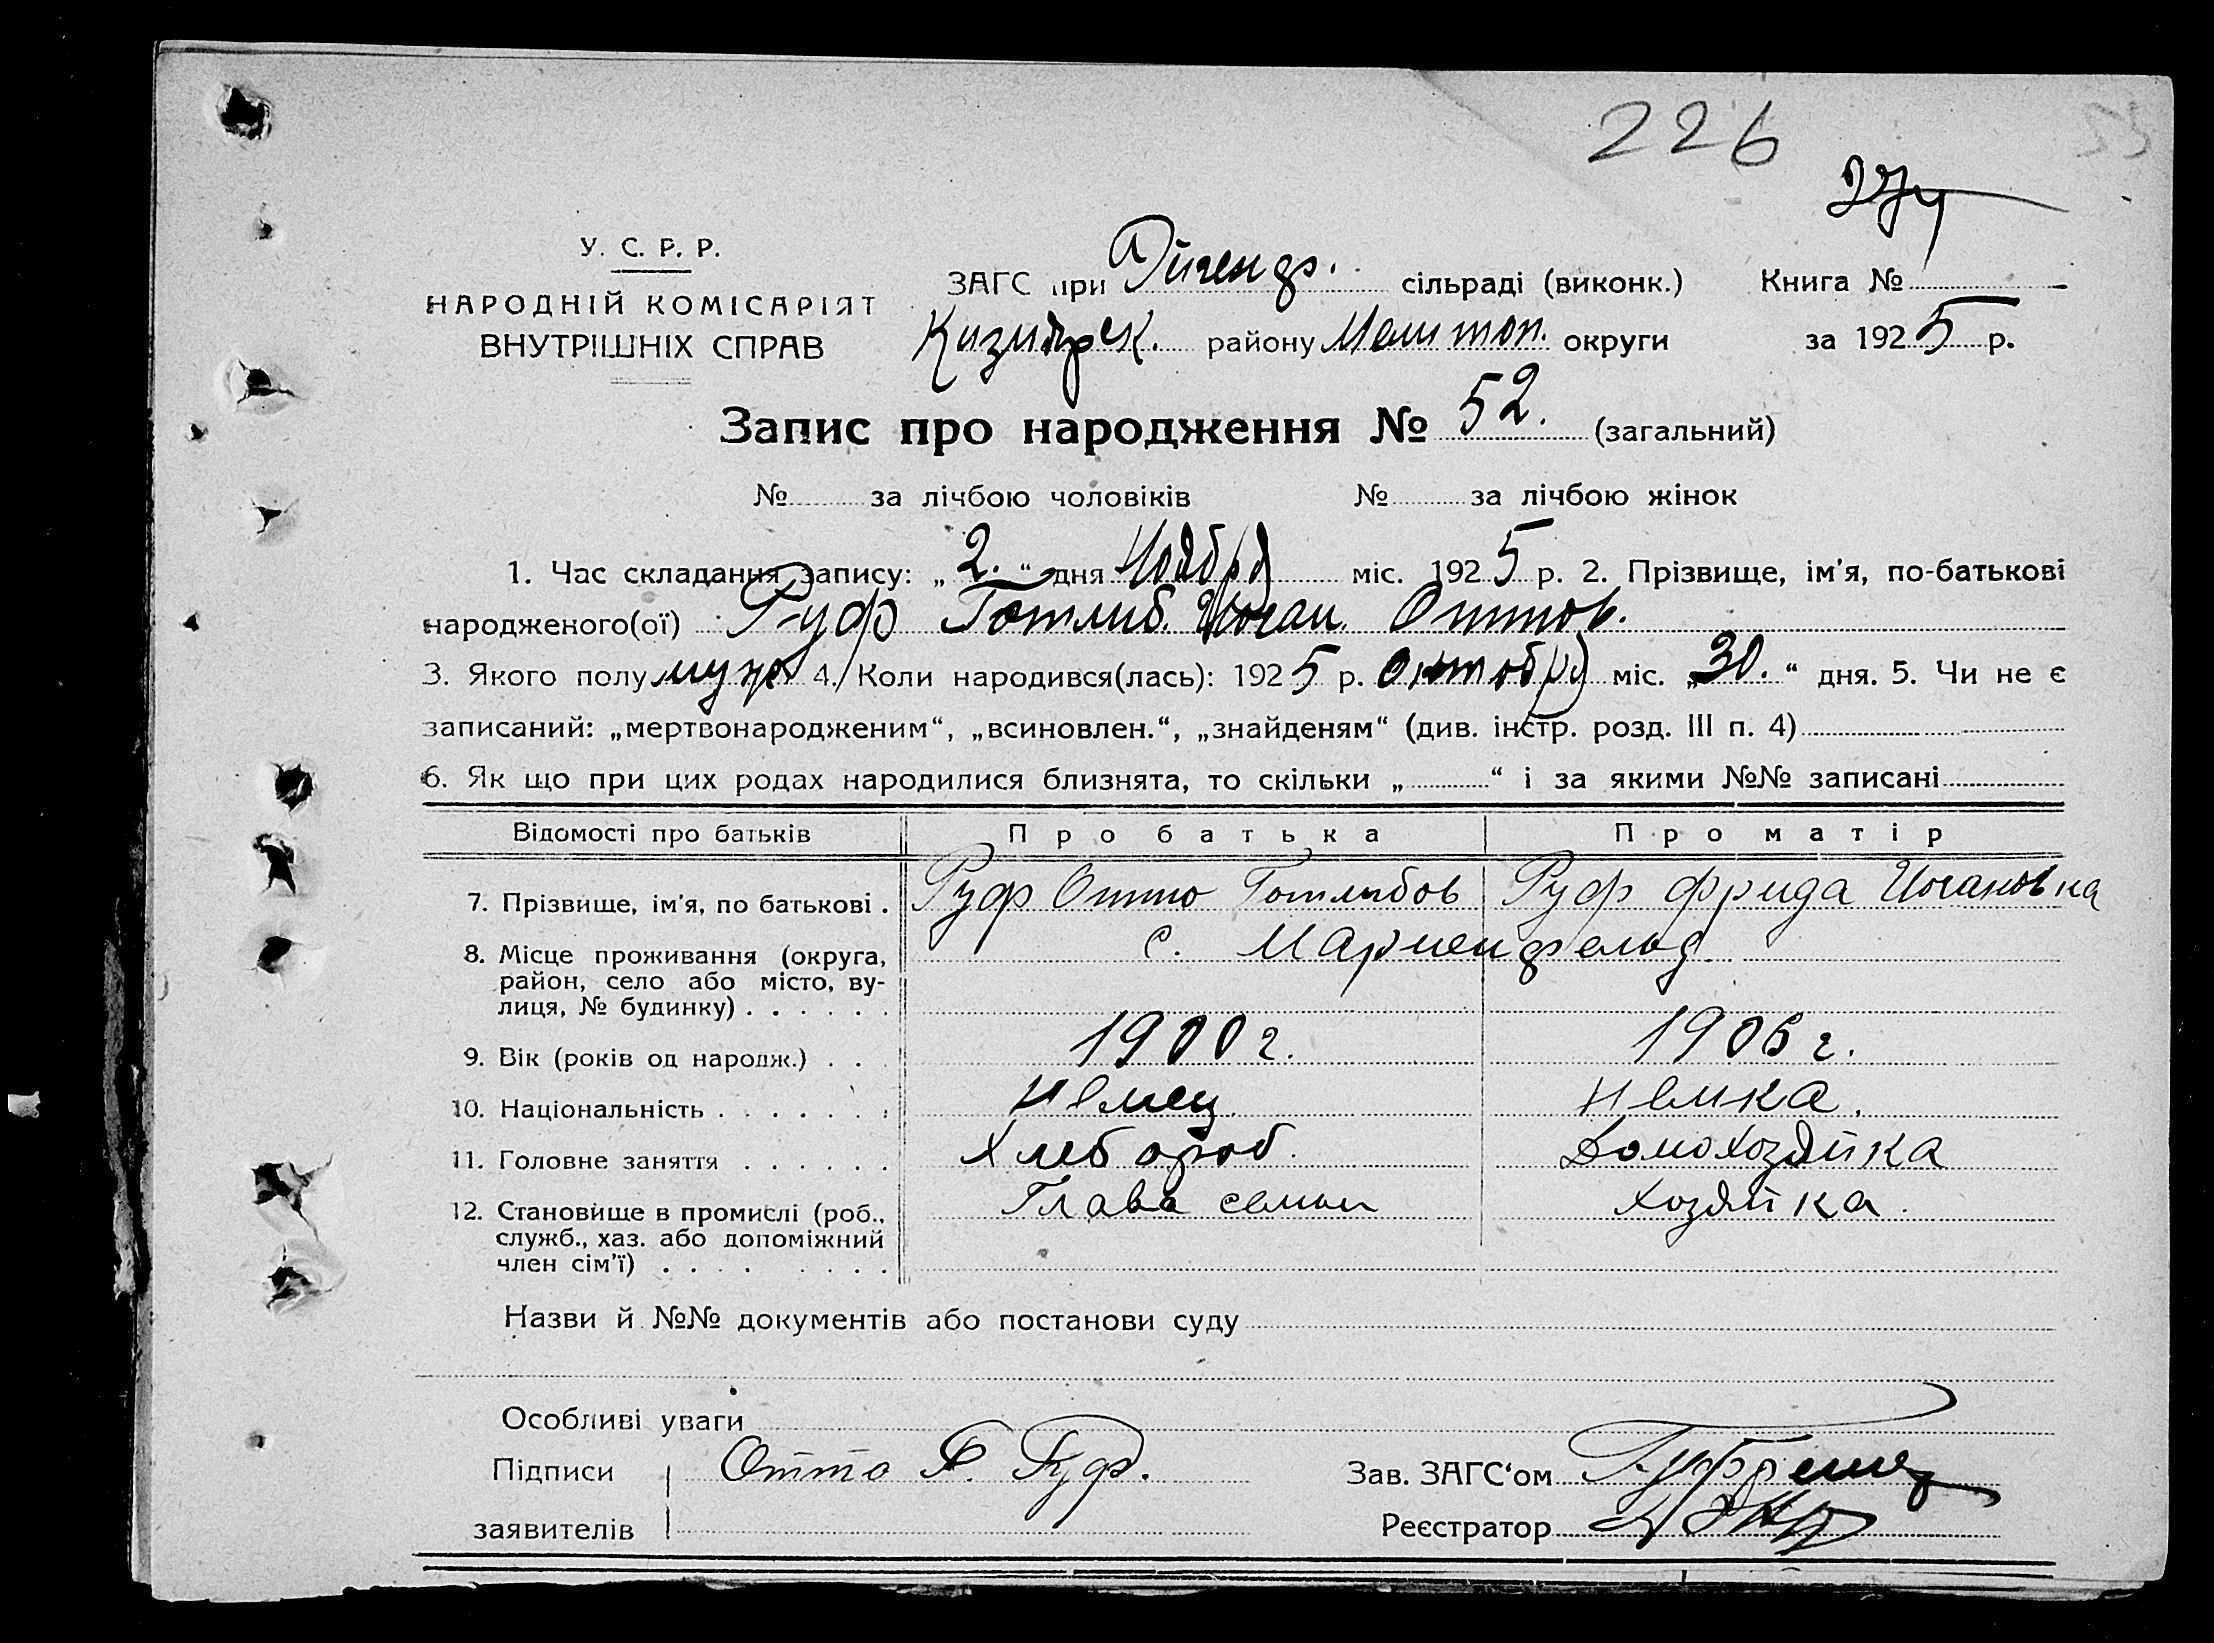 226
53
274
У. С. Р. Р.
НАРОДНІЙ КОМІСАРІЯТ
ВНУТРІШНІХ СПРАВ
ЗАГС при Эйгенф. сільраді (виконк.) Книга №
района Мелитоп. округи за 1925 р.
Запис про народження № 52. (загальний)
№ за лічбою чоловіків № за лічбою жінок
1. Час складання запису: „2.“ дня Ноября міс. 1925 р. 2. Прізвище, ім'я, по-батькові
народженого(ої) Руф Готлиб. Иоган. Оттов.
3. Якого полу муж 4. Коли народився(лась): 1925 р. Октября міс. „30.“ дня. 5. Чи не є
записаний: „мертвонародженим“, „всиновлен.“, „знайденям“ (див. інстр. розд. III п. 4)
6. Як що при цих родах народилися близнята, то скільки „ “ і за якими №№ записані
Відомості про батьків Про батька Про матір
7. Прізвище, ім'я, по батькові . Руф Отто Готлибов Руф Фрида Иогановна
8. Місце проживання (округа, с. Мариенфельд
район, село або місто, ву-
лиця, № будинку) . . . . . .
9. Вік (років од народж.) . . . 1900 г. 1906 г.
10. Національність . . . . . . . Немец. Немка.
11. Головне заняття . . . . . . Хлебороб. Домохозяйка
12. Становище в промислі (роб., Глава семьи Хозяйка.
служб., хаз. або допоміжний
член сім'ї) . . . . . . . .
Назви й №№ документів або постанови суду
Особливі уваги
Підписи Отто Г. Руф. Зав. ЗАГС‘ом
заявителів Реєстратор